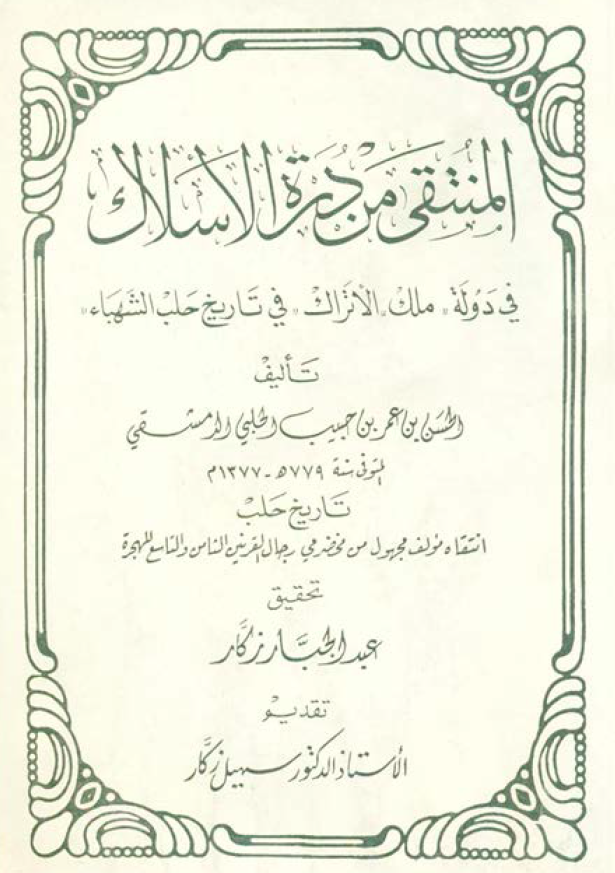 المنتقى من درة الأسلاك
في دولة «ملك الأتراك» في تاريخ حلب الشهباء»
تأليف
الحسن بن عمر بن حبيب الحلبي الدمشقي
المتوفى سنة ٧٧٩هـ - ١٣٧٧م
تاريخ حلب
انتقاه مؤلف مجهول من مخضرمي رجال القرنين الثامن والتاسع للهجرة
تحقيق
عبد الجبار زكار
تقديم
الأستاذ الدكتور سهيل زكار